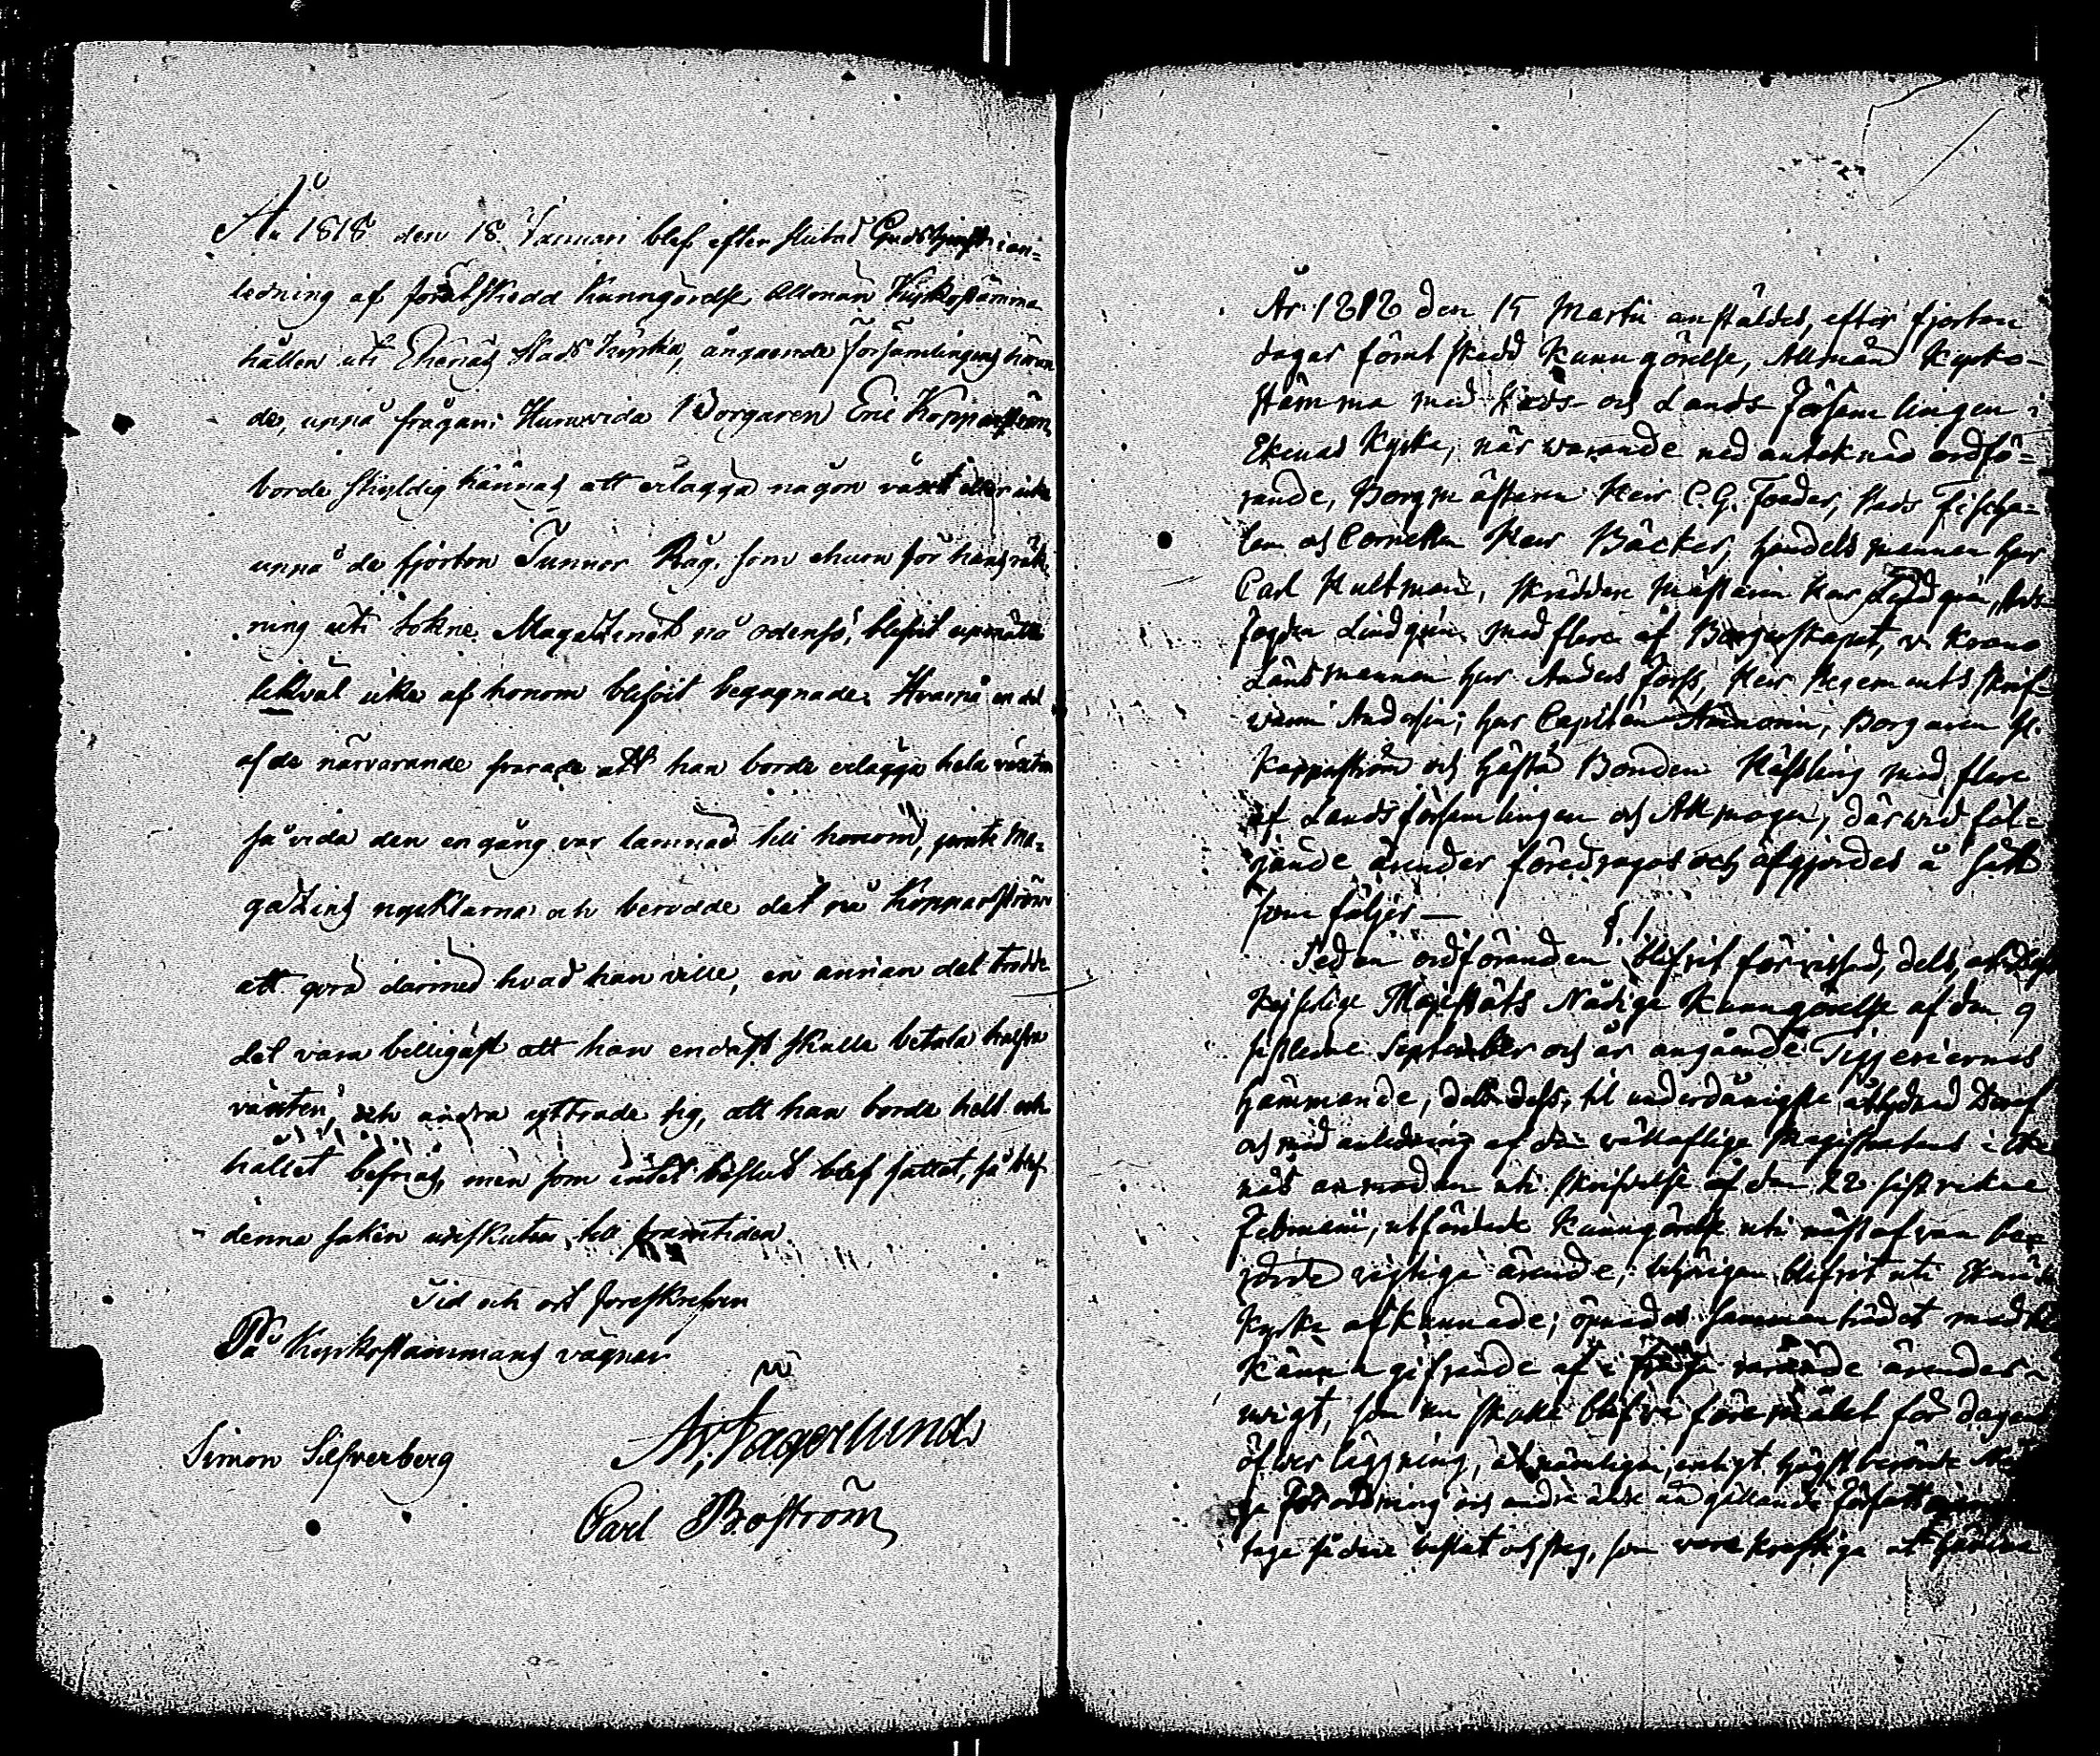 År 1818 den 18 Januari blef efter slutad Gudstjenst i an=
ledning af förutskedd Kunngörelse Allmän Kyrkostämma
hållen uti Ekenäs Stads kyrka, angaende församlingens höran
de, uppå frågan: Huruvida Borgaren Eric Kopparström
borde skyldig kännas att erlägga någon växt eller icke
uppå de fjorton Tunnor Råg, som ehuru för hans räk
ning uti Sokne Magazinet på Odensö, blifvit upmätte
likväl icke af honom blifvit begagnade. Hvarpå en del
af de närvarande svarade att han borde erlägga hela växten
så vida den en gång var lämnad till honom, jemte Ma=
gazins nycklarna och berodde det på Kopparström
att göra därmed hvad han ville, en annan del trodde
det vara billigast att han endast skulle betala halfva
växten, och andra yttrade sig, att han borde helt och
hållet befrias, men som intet beslut blef fattat, så blef
denna saken uppskuten till framtiden.
Tid och ort föreskrefven
På Kyrkostämmans vägnar
Fagerlund
Simon Silfverberg
Carl Boström
År 1818 den 15 Martii anstäldes, efter fjorton
dagar förut skedd Kunngörelse, Allmän Kyrko-
stämma med Stads- och Lands Församlingen i
Ekenäs Kyrka, när warande ned anteknad ordfö=
rande, Borgmästaren Herr C. G. Foeder, Stads Fiscka=
len och Cornetten Herr Bäcker, handelsmannen Herr
Carl Hultman, skräddare Mästaren Herr Lindgren, Stads
fogden Lindgren med flere af Borgerskapet, v. Krono
Länsmannen Herr Anders Forss, Herr Regements skrif=
varen, Herr Capitén, Borgaren H.
Kopparström och Gästgifvare Bonden Hässling med flere
af Landsförsamlingen och Allmogen, därwid föl=
jande ärender föredrogos och afgjordes å sätt
som följer —
§ 1
Sedan ordföranden blifvit förvissad, dels, at
Kejserlige Majestäts Nådige Kunngörelse af den 9
sistledne September och år angående Tiggeriernes
hämmande, dels dess, til underdånigste åtlydnad
och med anledning af den vällaflige Magistratens i Eke
näs anmodan uti skrifvelse af den 22 sistvekne
Februarii, utfärdade Kunngörelse uti nästofvan be=
rörde vigtiga ärende, behörigen blifvit uti Ekenäs
Kyrka afkunnade; öpnades sammanträdet med til
Känna gifvande af i fråga warande ärendes
wigt, som nu skulle blifva föremålet för dagens
öfwerläggning, at nämligen, enligt högstberörde Nå
ga Förordning och andre gällande författningar
taga sådane beslut och steg, som vore kraftiga at hämma